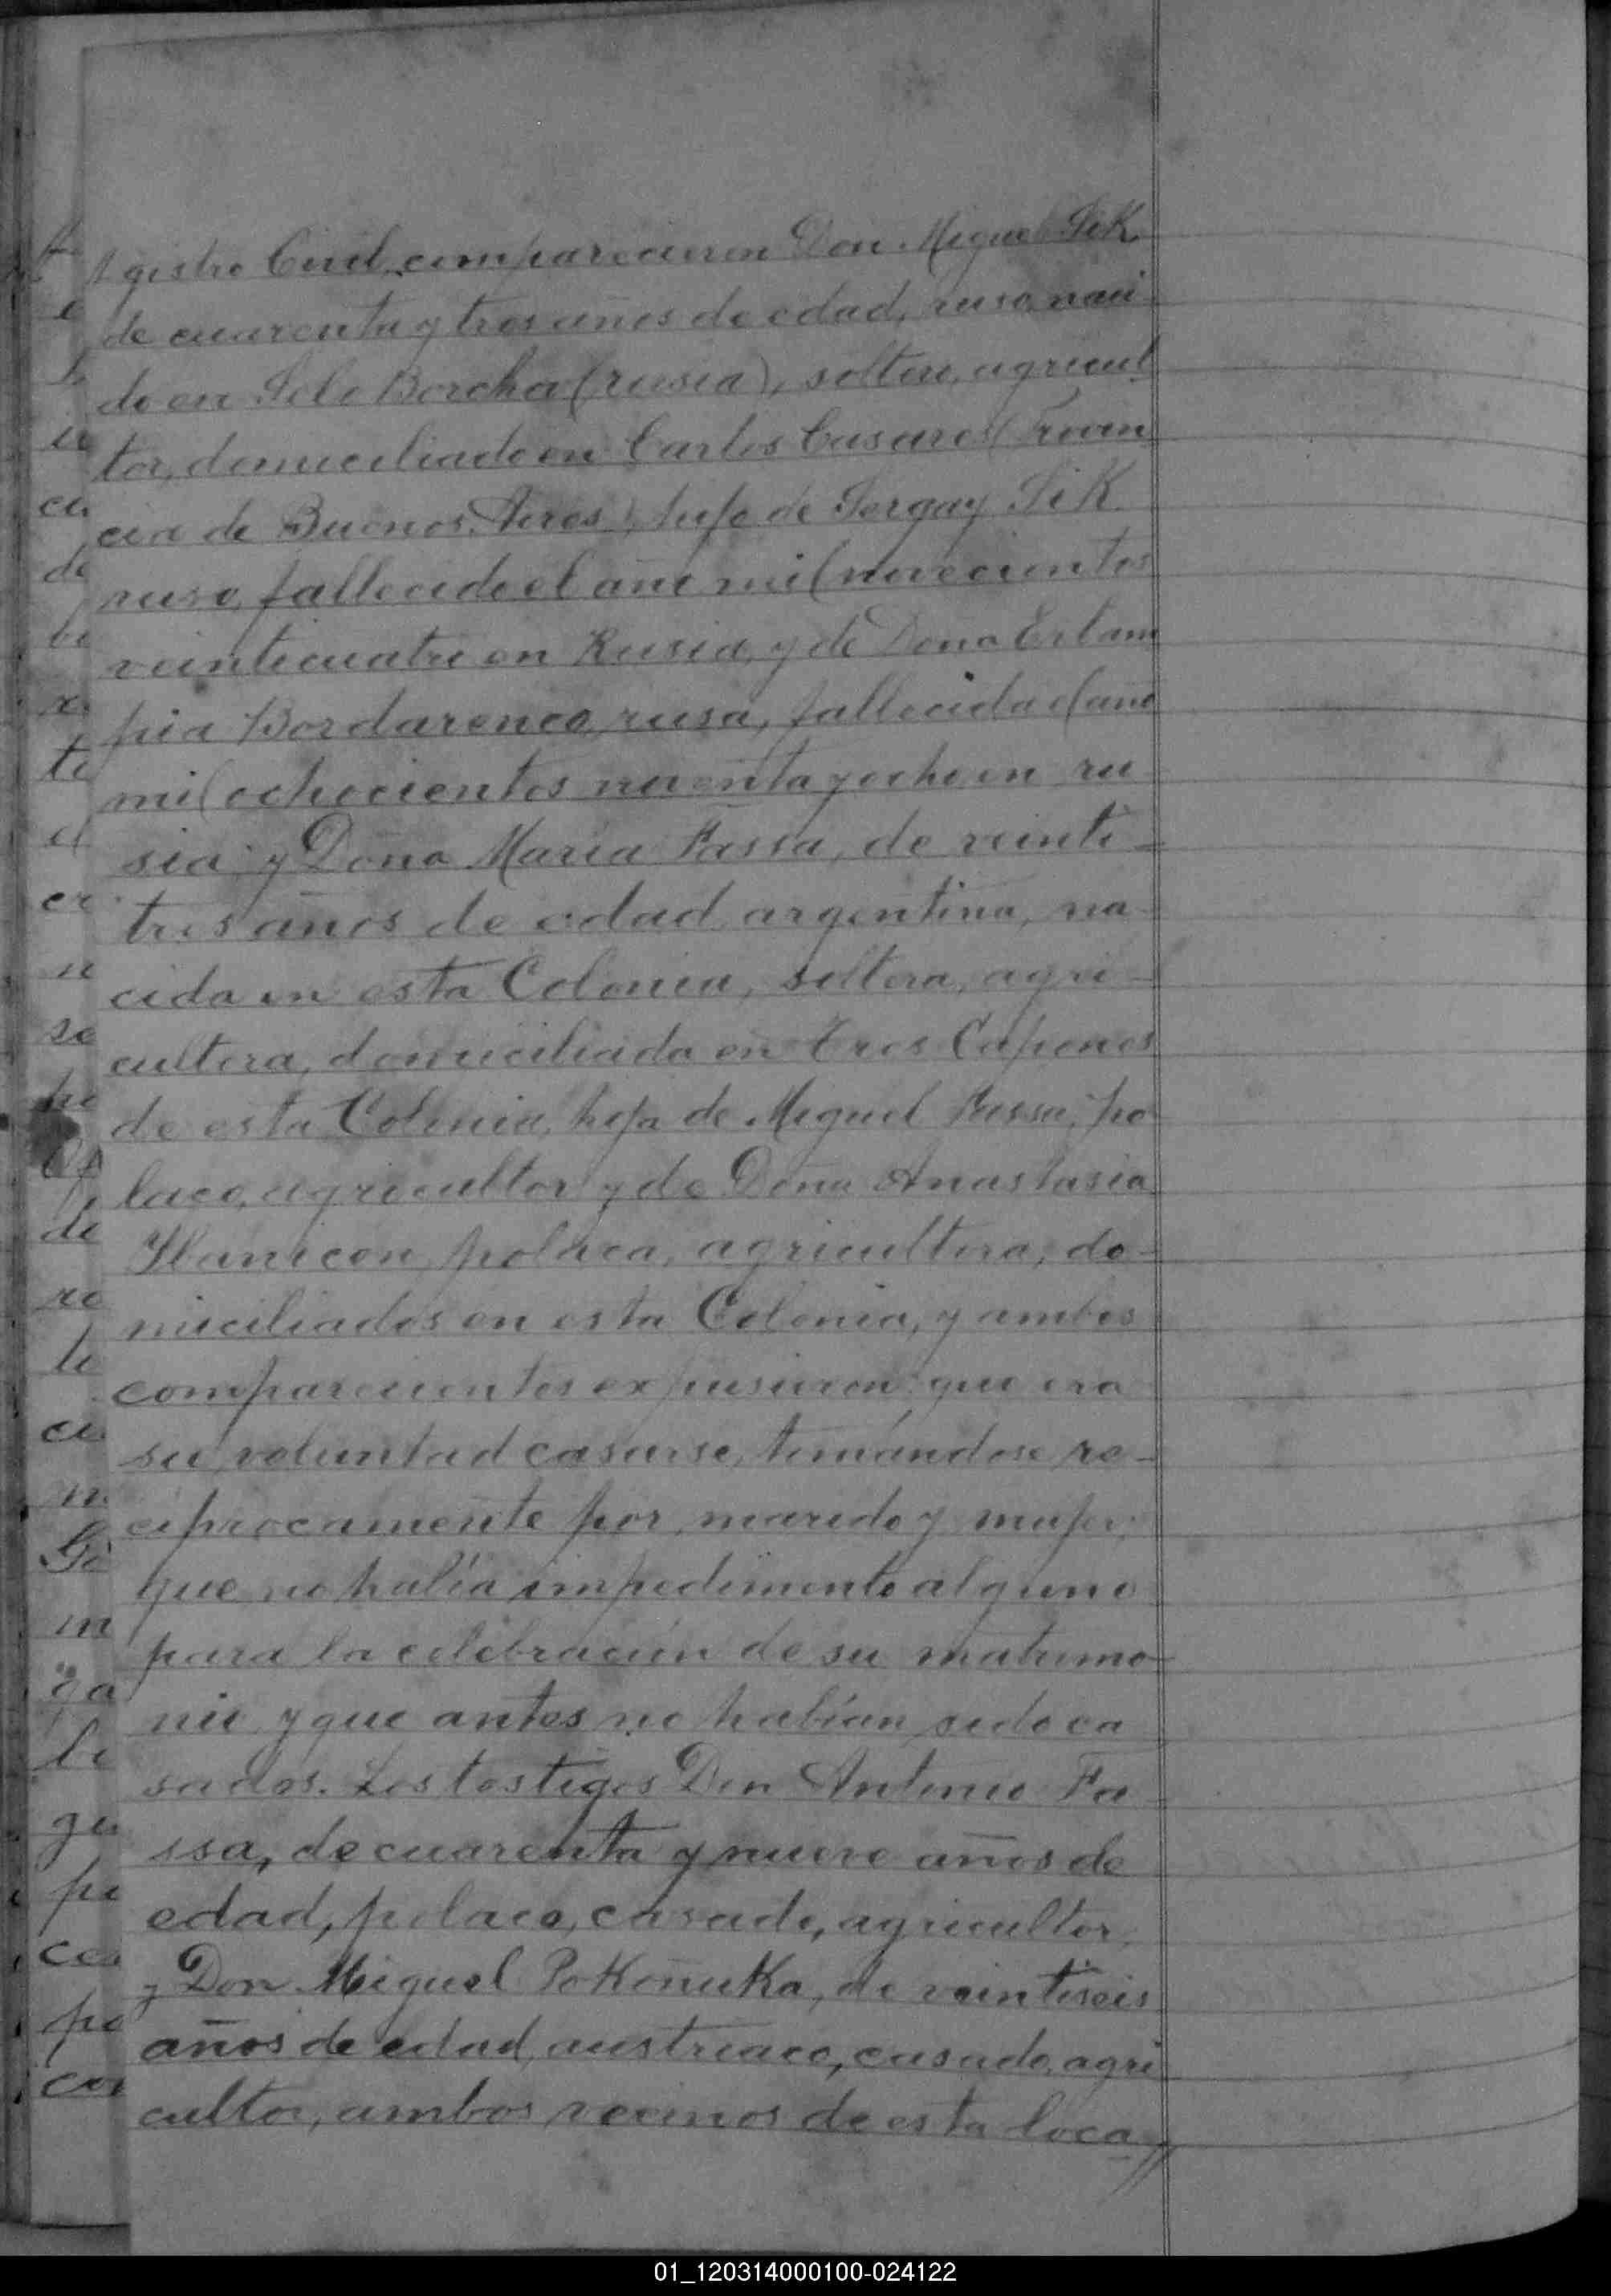 gistro Civil comparecieron Don Miguel Sik
de cuarenta y tres años de edad, ruso, naci-
do en Selo Borcha (rusia), soltero, agricul
tor, domiciliado en Carlos Casares (Provin
cia de Buenos Aires), hijo de Sergay Sik.
ruso, fallecido el año mil novecientos
veinticuatro en Rusia, y de Doña
pia Bordarenco, rusa, fallecida el año
mil ochocientos noventa y ocho en ru
sia y Doña María Fassa, de veinti-
tres años de edad, argentina, na-
cida en esta Colonia, soltera, agri-
cultora, domiciliada en Tres Capones
de esta Colonia, hija de Miguel Fassa, po
laco, agricultor y de Doña Anastasia
polaca, agricultora, do-
miciliados en esta Colonia, y ambos
comparecientes expusieron: que era
su voluntad casarse, tomándose re-
ciprocamente por marido y mujer;
que no había impedimento alguno
para la celebración de su matrimo-
nio y que antes no habían sido ca
sados. Los testigos Don Antonio Fa
ssa, de cuarenta y nueve años de
edad, polaco, casado, agricultor,
y Don Miguel Pokoñuka, de veintiseis
años de edad, austriaco, casado, agri
cultor, ambos vecinos de esta loca//
01_120314000100-024122